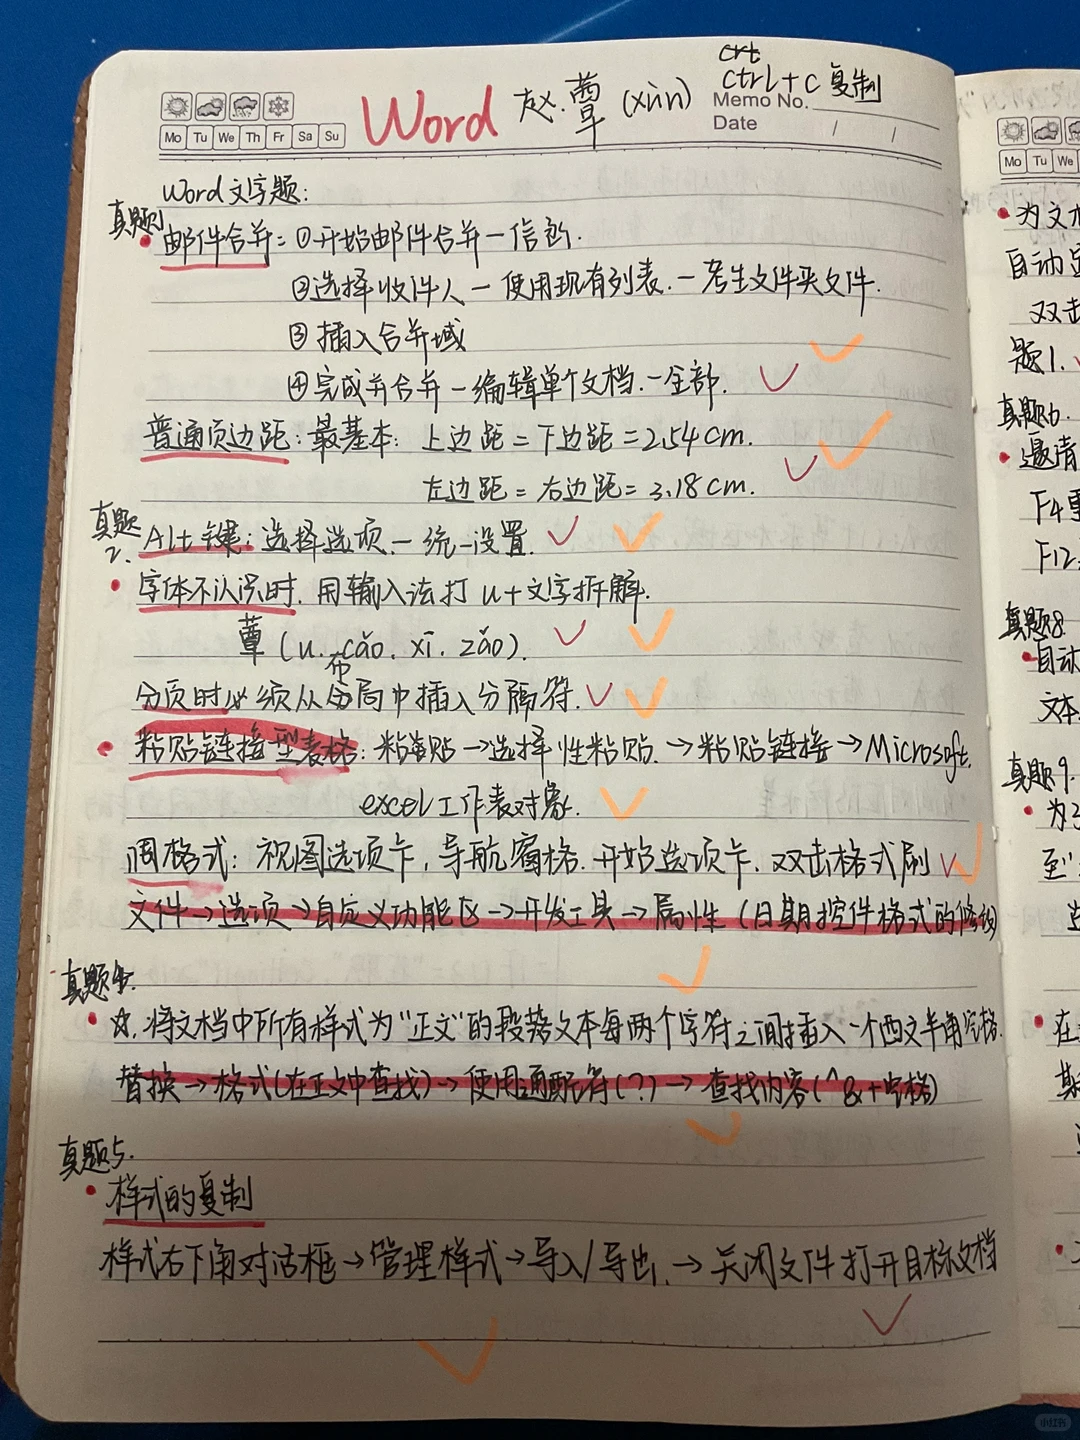 crt
Word 赵.蕈 (xùn) ctrl+c 复制
Memo No.
Mo Tu We Th Fr Sa Su
Date / /
Word文字题:
真题1
邮件合并: ①开始邮件合并—信函.
②选择收件人—使用现有列表.—考生文件夹文件.
③插入合并域
④完成并合并—编辑单个文档.—全部.
普通页边距: 最基本: 上边距=下边距=2.54cm.
左边距=右边距=3.18cm.
真题2.
Alt键: 选择选项—统一设置.
字体不认识时. 用输入法打u+文字拆解.
蕈 (u. cǎo. xī. zǎo).
分页时必须从布局中插入分隔符.
粘贴链接型表格: 粘贴→选择性粘贴.→粘贴链接→Microsoft.
excel工作表对象.
调格式: 视图选项卡, 导航窗格. 开始选项卡. 双击格式刷
文件→选项→自定义功能区→开发工具→属性 (日期控件格式的修改)
真题4.
☆. 将文档中所有样式为"正文"的段落文本每两个字符之间插入一个西文半角空格.
替换→格式(在正文中查找)→使用通配符(?)→查找内容(^&+空格)
真题5.
样式的复制
样式右下角对话框→管理样式→导入/导出.→关闭文件打开目标文档
Mo Tu We
为文
自动
双击
题1.
真题6
邀请
F4重
F12
真题8.
自动
文本
真题9.
为
至"
在
小红书